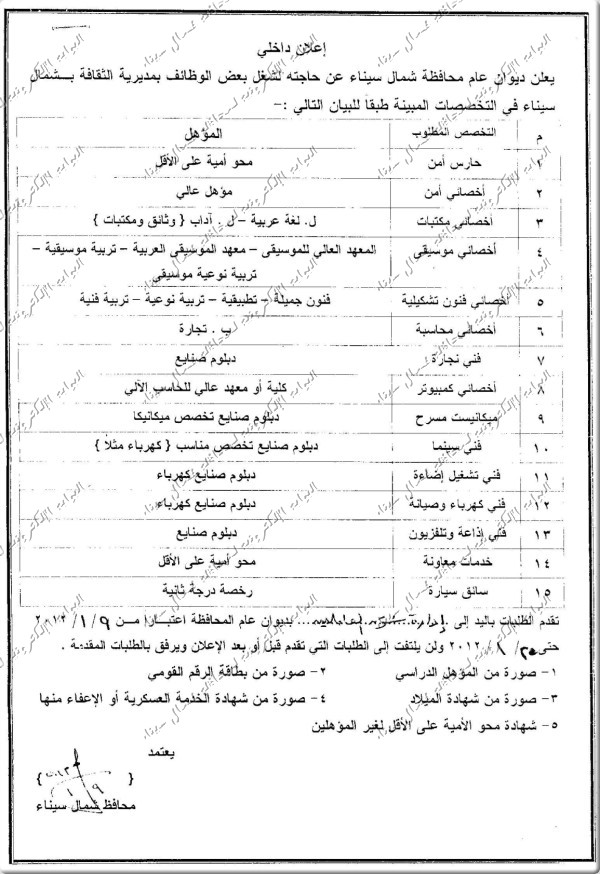 إعلان داخلي
يعلن ديوان عام محافظة شمال سيناء عن حاجته لشغل بعض الوظائف بمديرية الثقافة بـــشمال
سيناء في التخصصات المبينة طبقا للبيان التالي :-
م التخصص المطلوب المؤهل
١ حارس أمن محو أمية على الأقل
٢ أخصائي أمن مؤهل عالي
٣ أخصائي مكتبات ل. لغة عربية – ل . آداب { وثائق ومكتبات }
٤ أخصائي موسيقي المعهد العالي للموسيقى – معهد الموسيقى العربية – تربية موسيقية –
تربية نوعية موسيقي
٥ أخصائي فنون تشكيلية فنون جميلة – تطبيقية – تربية نوعية – تربية فنية
٦ أخصائي محاسبة ب . تجارة
٧ فني نجارة دبلوم صنايع
٨ أخصائي كمبيوتر كلية أو معهد عالي للحاسب الآلي
٩ ميكانيست مسرح دبلوم صنايع تخصص ميكانيكا
١٠ فني سينما دبلوم صنايع تخصص مناسب { كهرباء مثلاً }
١١ فني تشغيل إضاءة دبلوم صنايع كهرباء
١٢ فني كهرباء وصيانة دبلوم صنايع كهرباء
١٣ فني إذاعة وتلفزيون دبلوم صنايع
١٤ خدمات معاونة محو أمية على الأقل
١٥ سائق سيارة رخصة درجة ثانية
تقدم الطلبات باليد إلى بديوان عام المحافظة اعتبـــارا مـــن ٩ / ١ / ٢٠١٢
حتى / ١ / ٢٠١٢ ولن يلتفت إلى الطلبات التي تقدم قبل أو بعد الإعلان ويرفق بالطلبات المقدمة .
١- صورة من المؤهل الدراسي ٢- صورة من بطاقة الرقم القومي
٣- صورة من شهادة الميلاد ٤- صورة من شهادة الخدمة العسكرية أو الإعفاء منها
٥- شهادة محو الأمية على الأقل لغير المؤهلين
يعتمد
{ }
٩ / ١
محافظ شمال سيناء